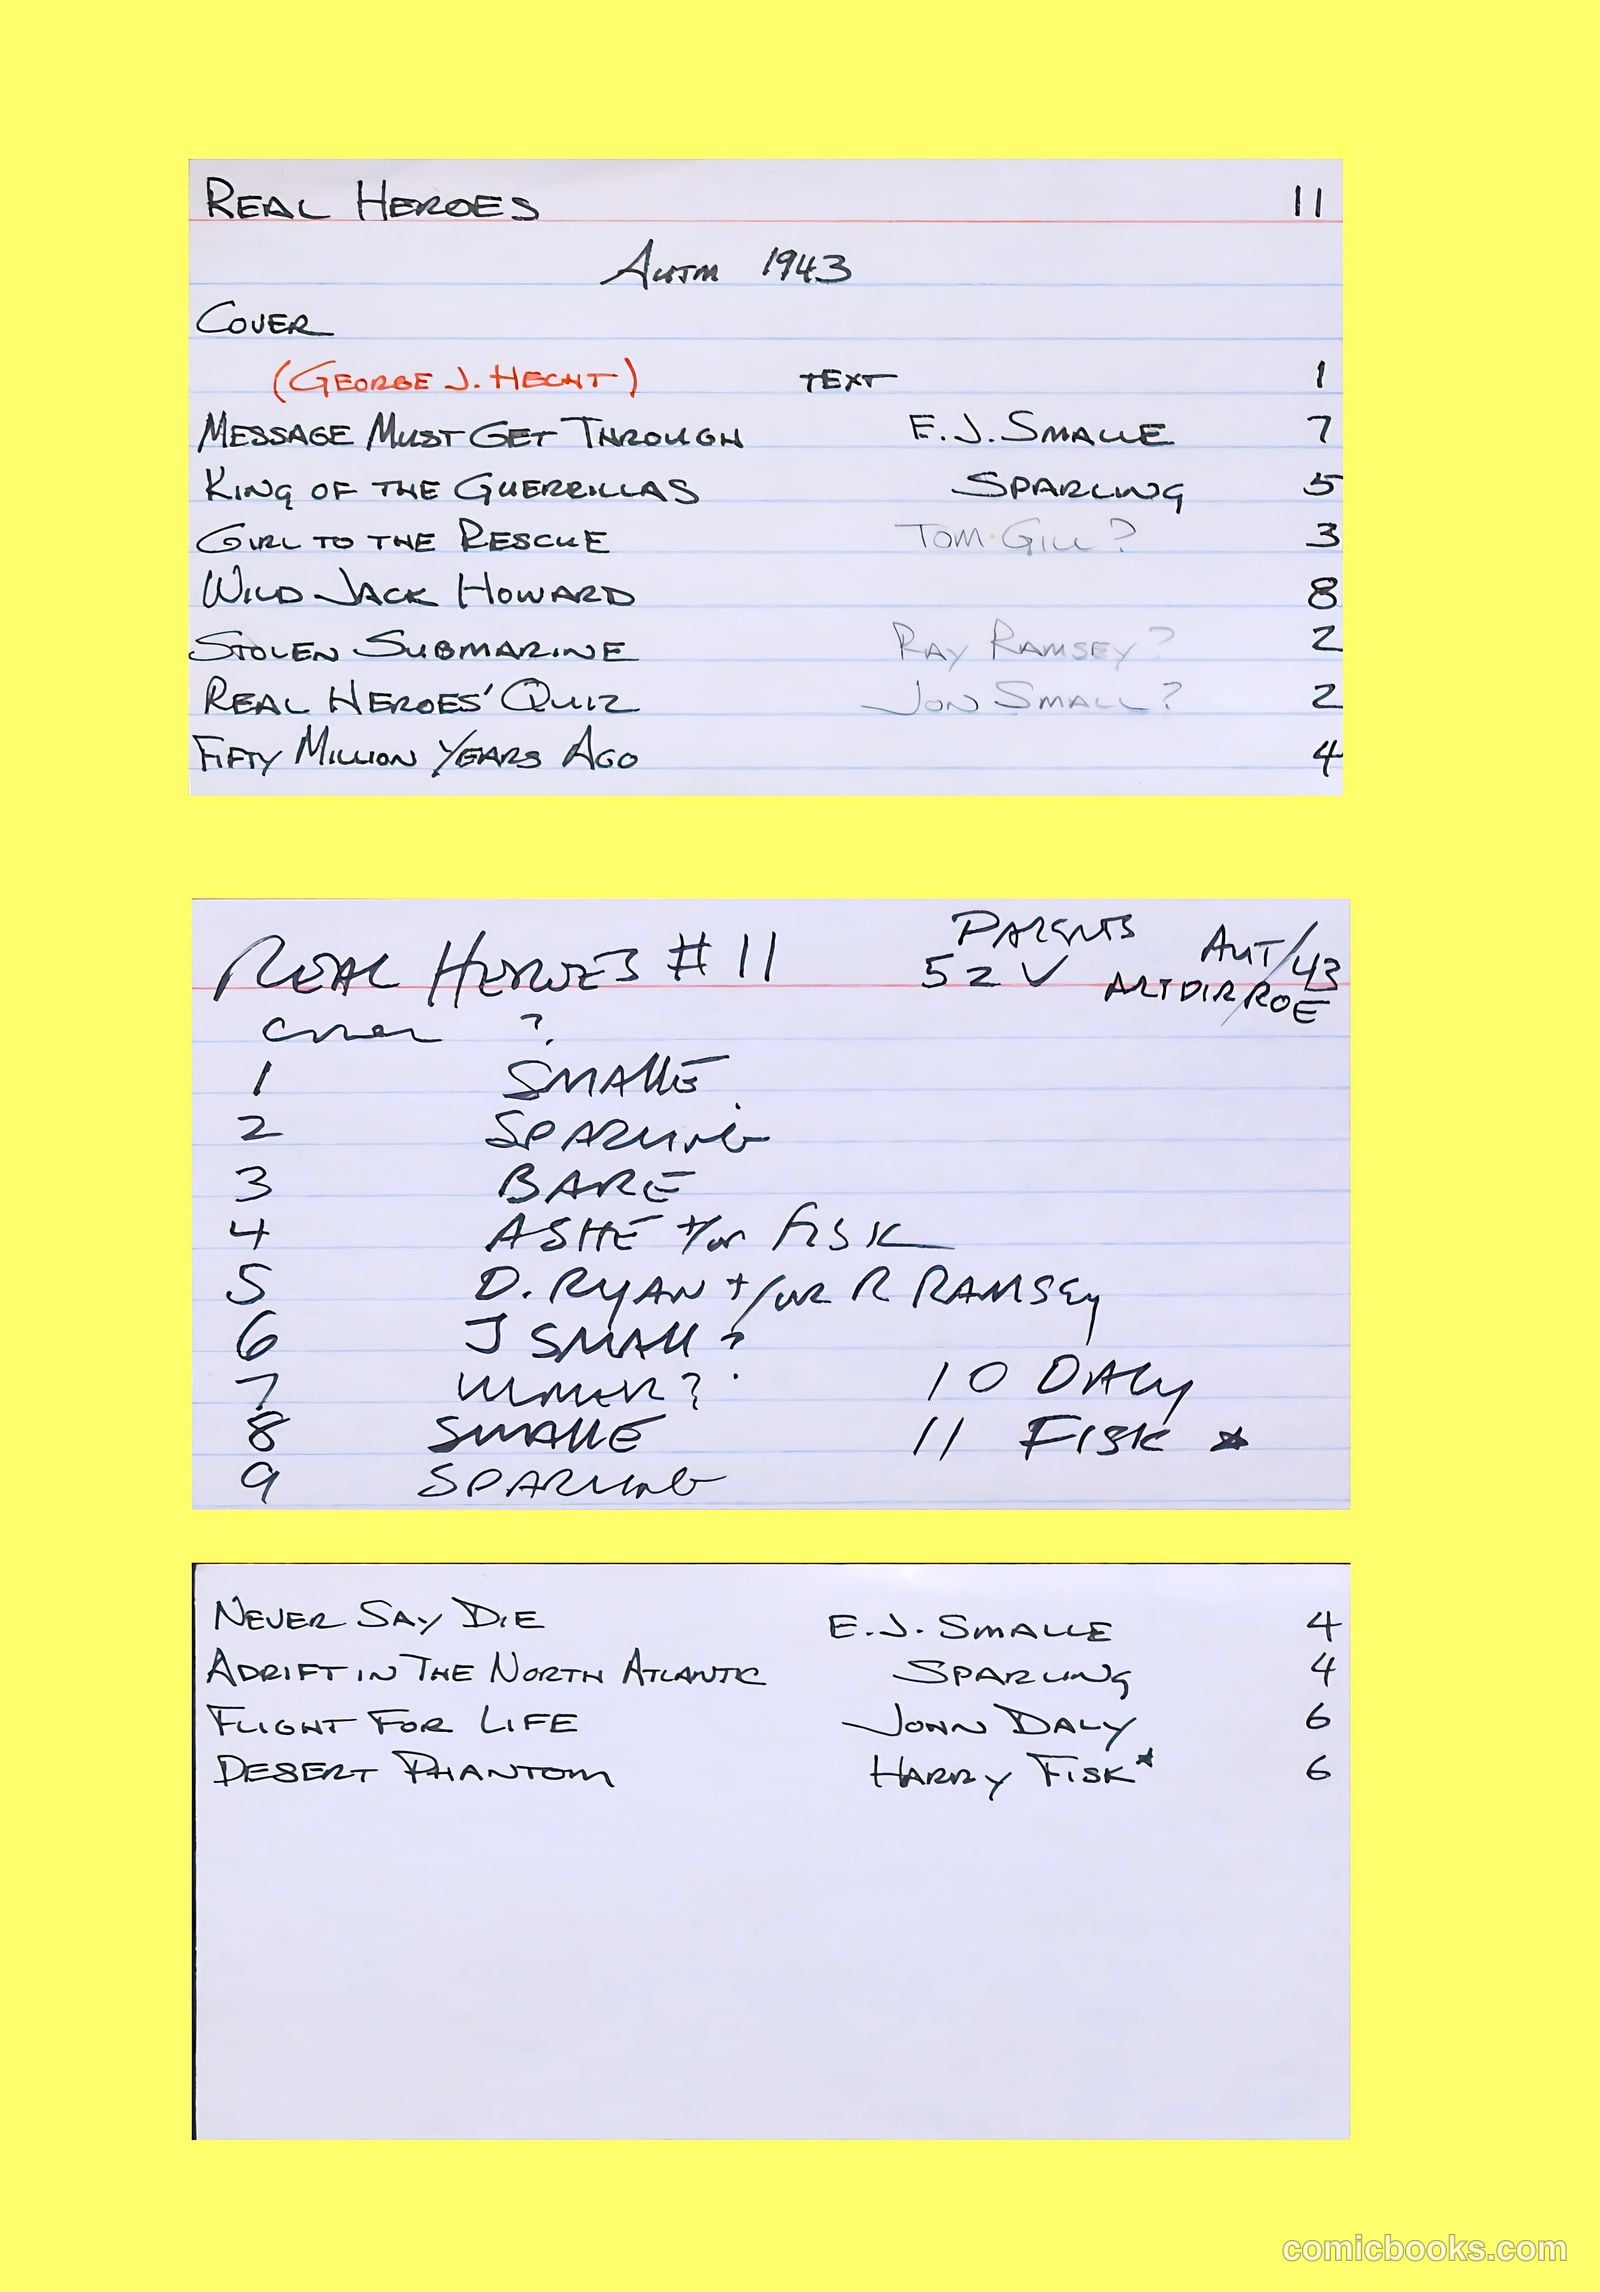 REAL HEROES 11
AUTM 1943
COVER
(GEORGE J. HECHT) TEXT 1
MESSAGE MUST GET THROUGH E.J. SMALLE 7
KING OF THE GUERRILLAS SPARLING 5
GIRL TO THE RESCUE TOM GILL? 3
WILD JACK HOWARD 8
STOLEN SUBMARINE RAY RAMSEY? 2
REAL HEROES' QUIZ JON SMALL? 2
FIFTY MILLION YEARS AGO 4
REAL HEROES #11 PARENTS AUT/43
52 ✓ ART DIR/ROE
cover ?
1 SMALLE
2 SPARLING
3 BARE
4 ASHE +/or FISK
5 D. RYAN +/OR R RAMSEY
6 J SMALL?
7
10 DALY
8 SMALLE 11 FISK ★
9 SPARLING
NEVER SAY DIE E.J. SMALLE 4
ADRIFT IN THE NORTH ATLANTIC SPARLING 4
FLIGHT FOR LIFE JOHN DALY 6
DESERT PHANTOM HARRY FISK★ 6
comicbooks.com